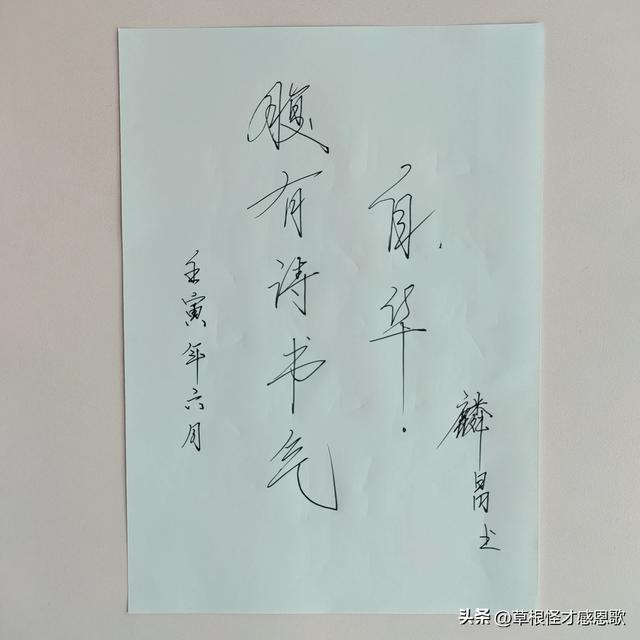 壬寅年六月
腹有诗书气
自华.
麟昌书
头条 @草根怪才感恩歌